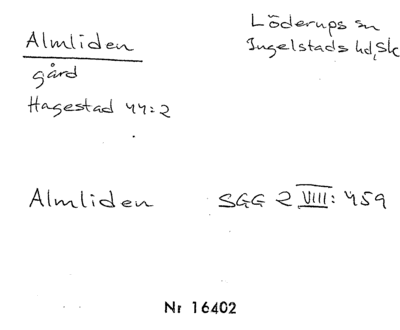 Almliden
Löderups sn
Ingelstads hd, Sk
gård
Hagestad 44:2
Almliden SGG 2 VIII: 459
Nr 16402